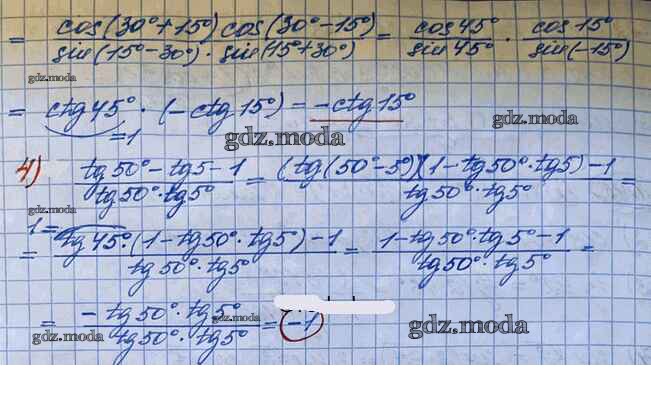 = cos(30°+15°) cos(30°-15°) / sin(15°-30°) · sin(15°+30°) = cos45° / sin45° · cos15° / sin(-15°)
gdz.moda
= ctg45° · (-ctg15°) = -ctg15°
gdz.moda
=1
gdz.moda
4) tg50° - tg5 - 1 / tg50° · tg5° = (tg(50°-5°)(1-tg50°·tg5) - 1 / tg50° · tg5° =
1=
= tg45°·(1-tg50°·tg5°) - 1 / tg50° · tg5° = 1-tg50°·tg5° - 1 / tg50° · tg5° =
= -tg50° · tg5° / tg50° · tg5° = -1
gdz.moda
gdz.moda
gdz.moda